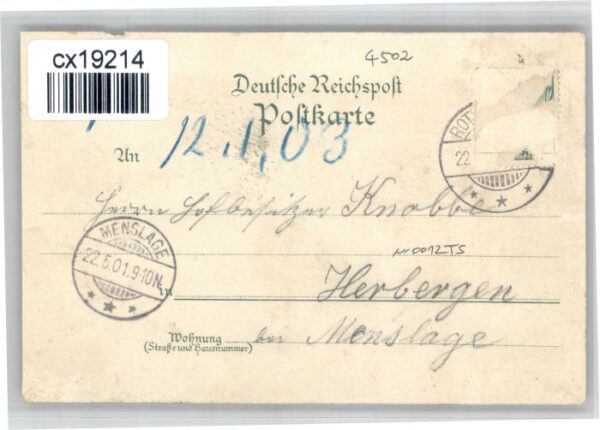 cx19214
4502
Deutsche Reichspost
Postkarte
12.1.03
An
ROT
22
Herrn Hofbesitzer Knobbe
MENSLAGE
22.5.01.9-10N.
Nr0012TS
in Herbergen
Wohnung
(Straße und Hausnummer)
bei Menslage